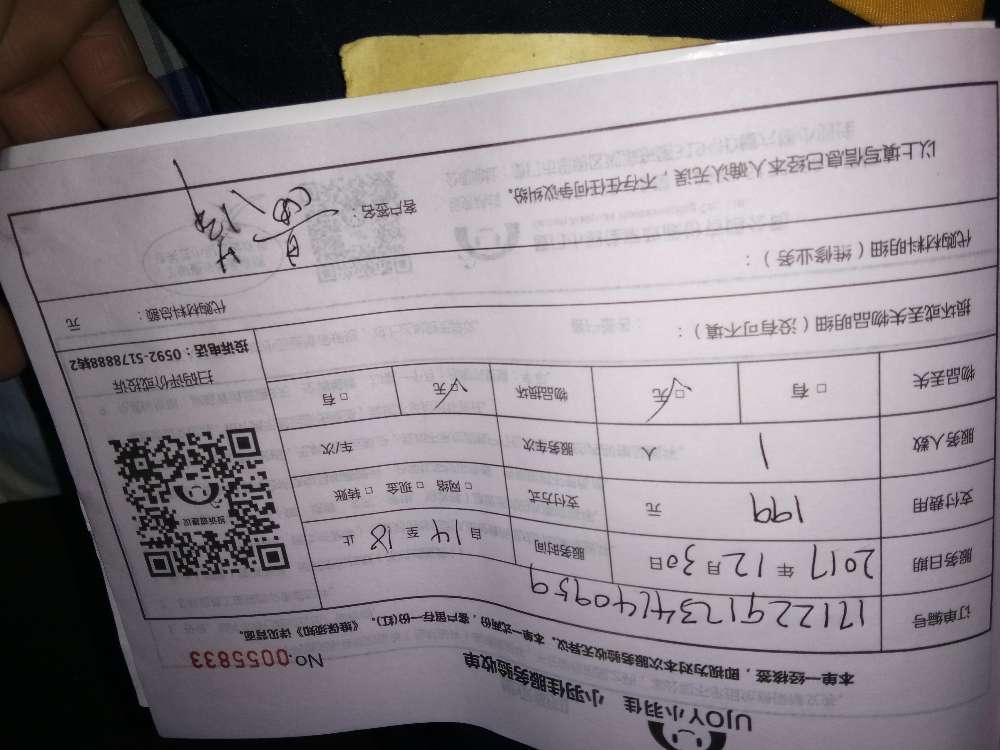 UJOY小羽佳 小羽佳服务验收单
No.0055833
本单一经核签，即视为对本次服务验收无异议。本单一式两份，客户留存一份(红)。《维保须知》详见背面。
订单编号 1712291734140959
服务日期 2017年12月30日 服务时间 自14至18止
支付费用 199 元 支付方式 □网络 □现金 □转账
服务人数 1 人 服务车次 车/次
物品丢失 □有 □无 物品损坏 □无 □有
投诉或建议
扫码评价或投诉
投诉电话：0592-5178888转2
损坏或丢失物品明细（没有可不填）：
代购材料明细（维修业务）：
代购材料总额： 元
以上填写信息已经本人确认无误，不存在任何争议纠纷。
客户签名：